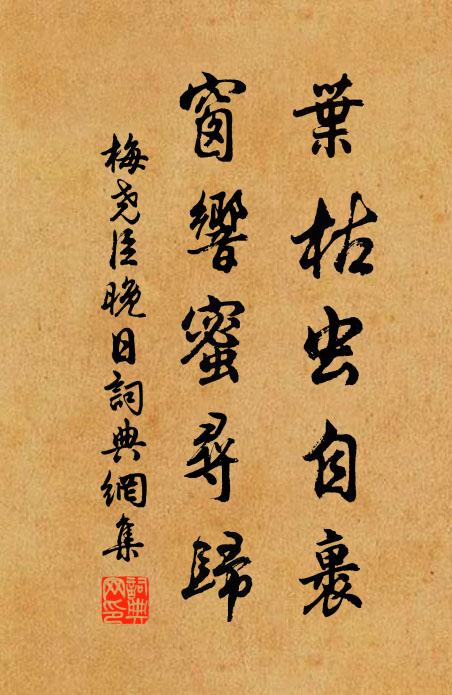 葉枯虫自裹
窗響蜜尋歸
梅尧臣晚日詞典網集
詞典網印